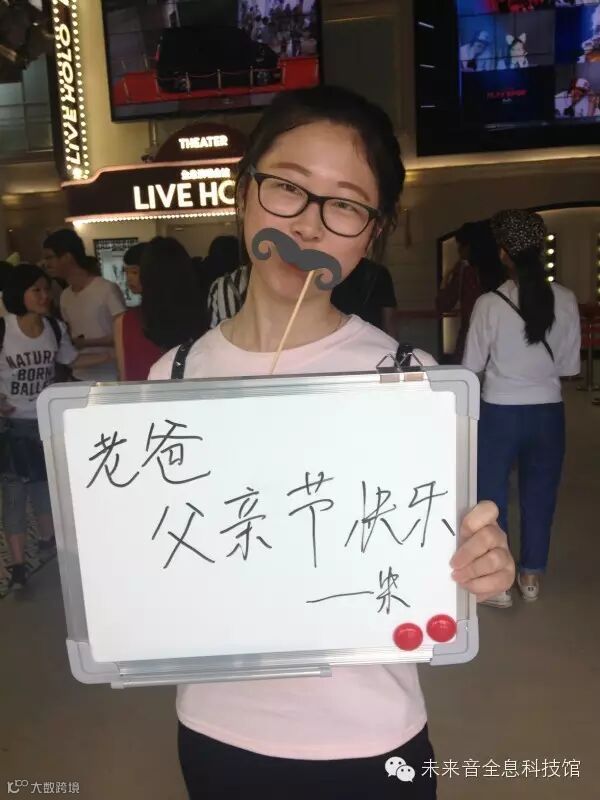 LIVE HOLO
THEATER
LIVE HO
NATURAL
BORN
BALLER
老爸
父亲节快乐
大数跨境
未来音全息科技馆